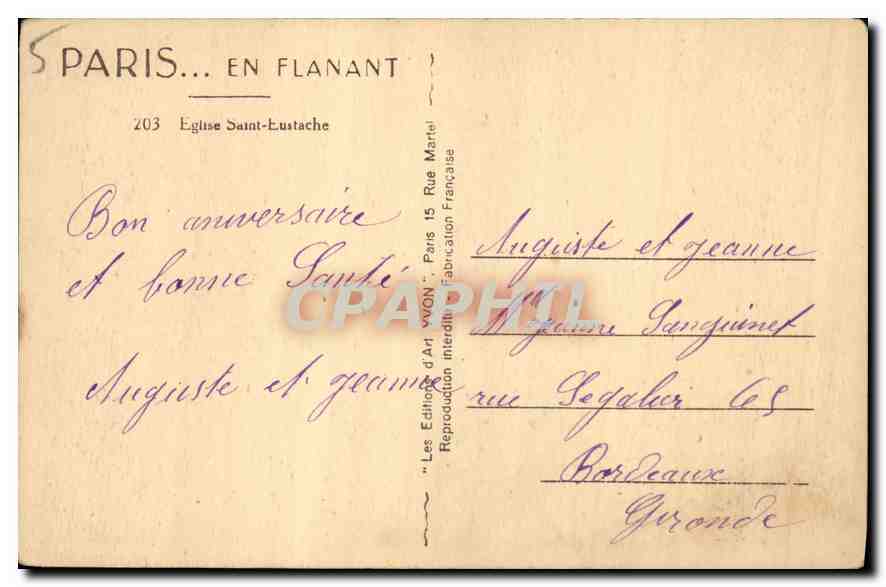 5
PARIS... EN FLANANT
203 Eglise Saint-Eustache
Bon aniversaire
et bonne Santé
Auguste et jeanne
"Les Editions d'Art YVON", Paris 15 Rue Martel
Reproduction interdite. Fabrication Française
CPAPHIL
Auguste et jeanne
Mme jeanne Sanguinet
rue Segalier 65
Bordeaux
Gironde